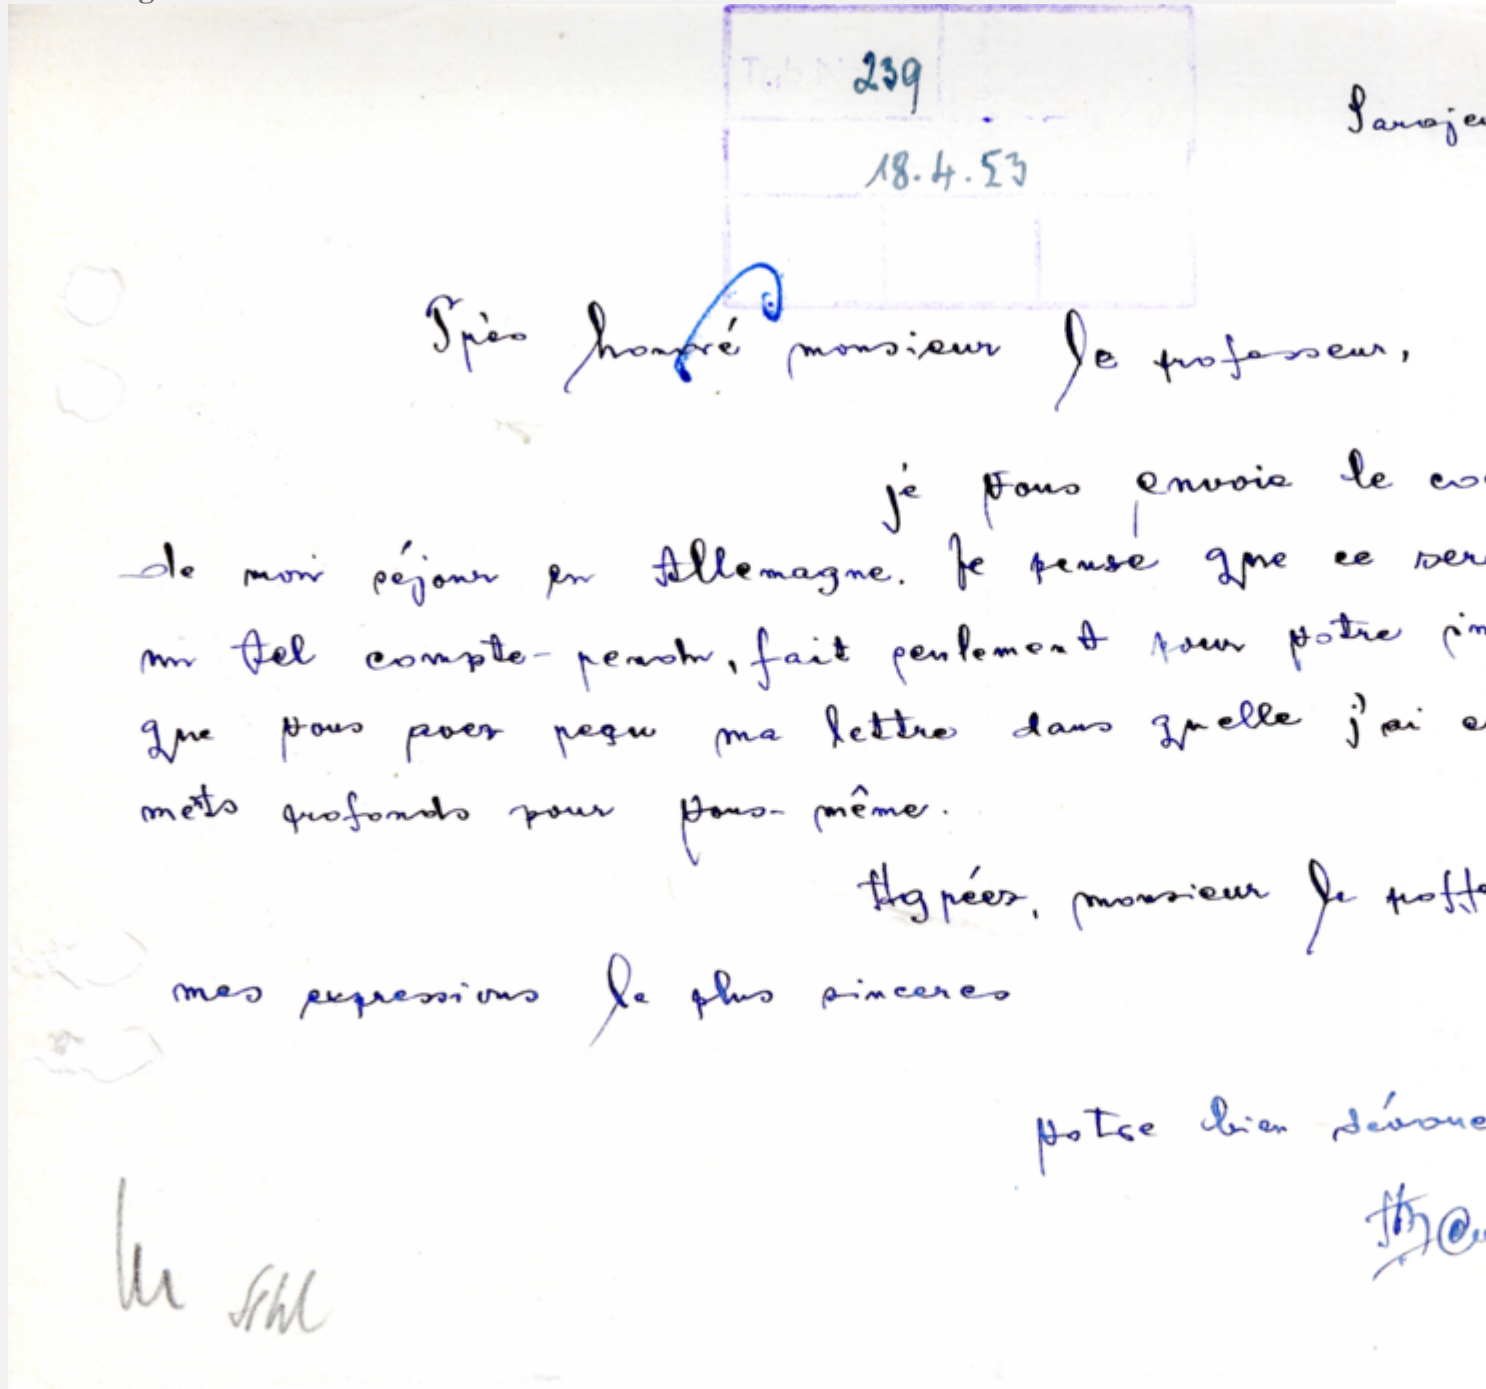 239
Saraje
18.4.53
Très honoré monsieur le professeur,
je vous envoie le co
de mon séjour en Allemagne. Je pense que ce ser
un tel compte-rendu, fait seulement pour votre in
que vous avez reçu ma lettre dans quelle j'ai e
mets profonds pour vous-même.
Agréez, monsieur le proffe
mes expressions le plus sinceres
votre bien dévoue